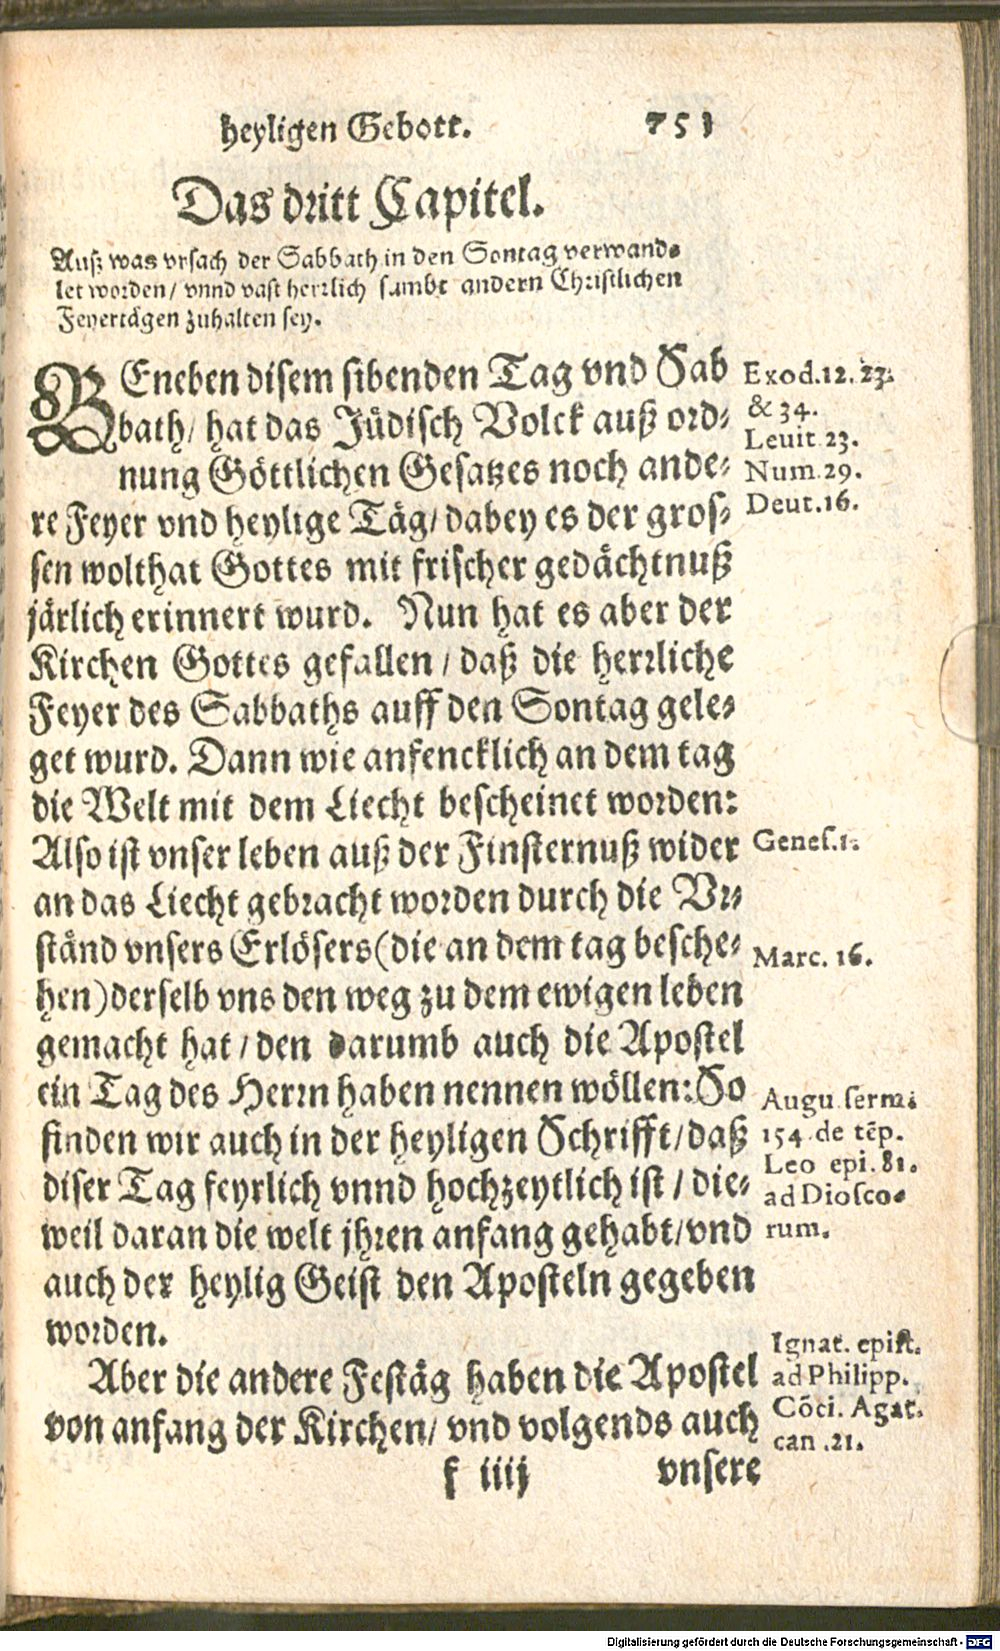 heyligen Gebott. 751
Das dritt Capitel.
Auß was vrsach der Sabbath in den Sontag verwand-
let worden/ vnnd vast herrlich sambt andern Christlichen
Feyertägen zuhalten sey.
BEneben disem sibenden Tag vnd Sab
bath/ hat das Jüdisch Volck auß ord-
nung Göttlichen Gesatzes noch ande-
re Feyer vnd heylige Täg/ dabey es der gros-
sen wolthat Gottes mit frischer gedächtnuß
järlich erinnert wurd. Nun hat es aber der
Kirchen Gottes gefallen / daß die herrliche
Feyer des Sabbaths auff den Sontag gele-
get wurd. Dann wie anfencklich an dem tag
die Welt mit dem Liecht bescheinet worden:
Also ist vnser leben auß der Finsternuß wider
an das Liecht gebracht worden durch die Vr-
ständ vnsers Erlösers (die an dem tag besche-
hen) derselb vns den weg zu dem ewigen leben
gemacht hat / den darumb auch die Apostel
ein Tag des Herrn haben nennen wöllen: So
finden wir auch in der heyligen Schrifft/ daß
diser Tag feyrlich vnnd hochzeytlich ist / die-
weil daran die welt jhren anfang gehabt/ vnd
auch der heylig Geist den Aposteln gegeben
worden.
Aber die andere Festäg haben die Apostel
von anfang der Kirchen/ vnd volgends auch
f iiij vnsere
Exod.12. 23.
& 34.
Leuit 23.
Num.29.
Deut.16.
Genes.1.
Marc. 16.
Augu serm.
154. de tẽp.
Leo epi. 81.
ad Diosco-
rum.
Ignat. epist.
ad Philipp.
Cõci. Agat.
can .21.
Digitalisierung gefördert durch die Deutsche Forschungsgemeinschaft - DFG